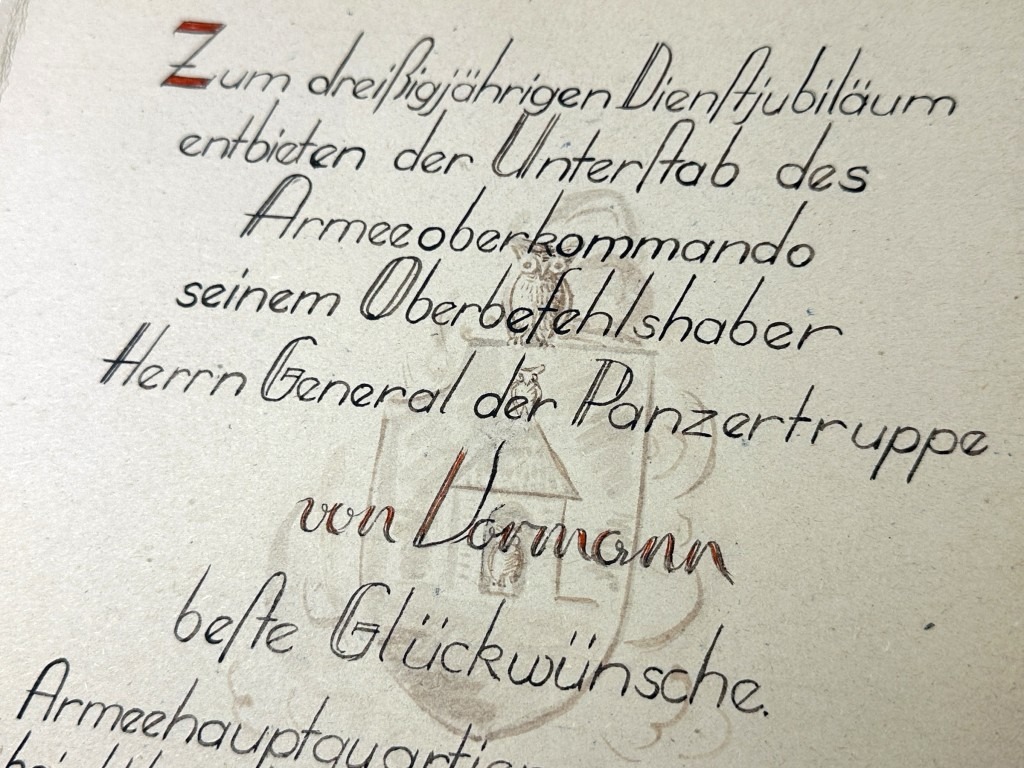 Zum dreißigjährigen Dienſtjubiläum
entbieten der Unterſtab des
Armeeoberkommando
seinem Oberbefehlshaber
Herrn General der Panzertruppe
von Vormann
beſte Glückwünsche.
Armeehauptquartier